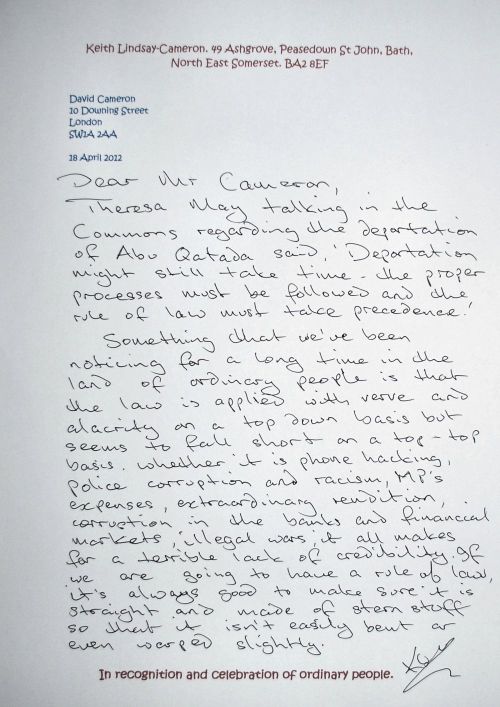 Keith Lindsay-Cameron. 49 Ashgrove, Peasedown St John, Bath,
North East Somerset. BA2 8EF
David Cameron
10 Downing Street
London
SW1A 2AA
18 April 2012
Dear Mr Cameron,
Theresa May talking in the
Commons regarding the deportation
of Abu Qatada said, 'Deportation
might still take time - the proper
processes must be followed and the
rule of law must take precedence.'
Something that we've been
noticing for a long time in the
land of ordinary people is that
the law is applied with verve and
alacrity on a top down basis but
seems to fall short on a top-top
basis. Whether it is phone hacking,
police corruption and racism, MP's
expenses, extraordinary rendition,
corruption in the banks and financial
markets, illegal wars, it all makes
for a terrible lack of credibility. If
we are going to have a rule of law,
it's always good to make sure it is
straight and made of stern stuff
so that it isn't easily bent or
even warped slightly.
In recognition and celebration of ordinary people.